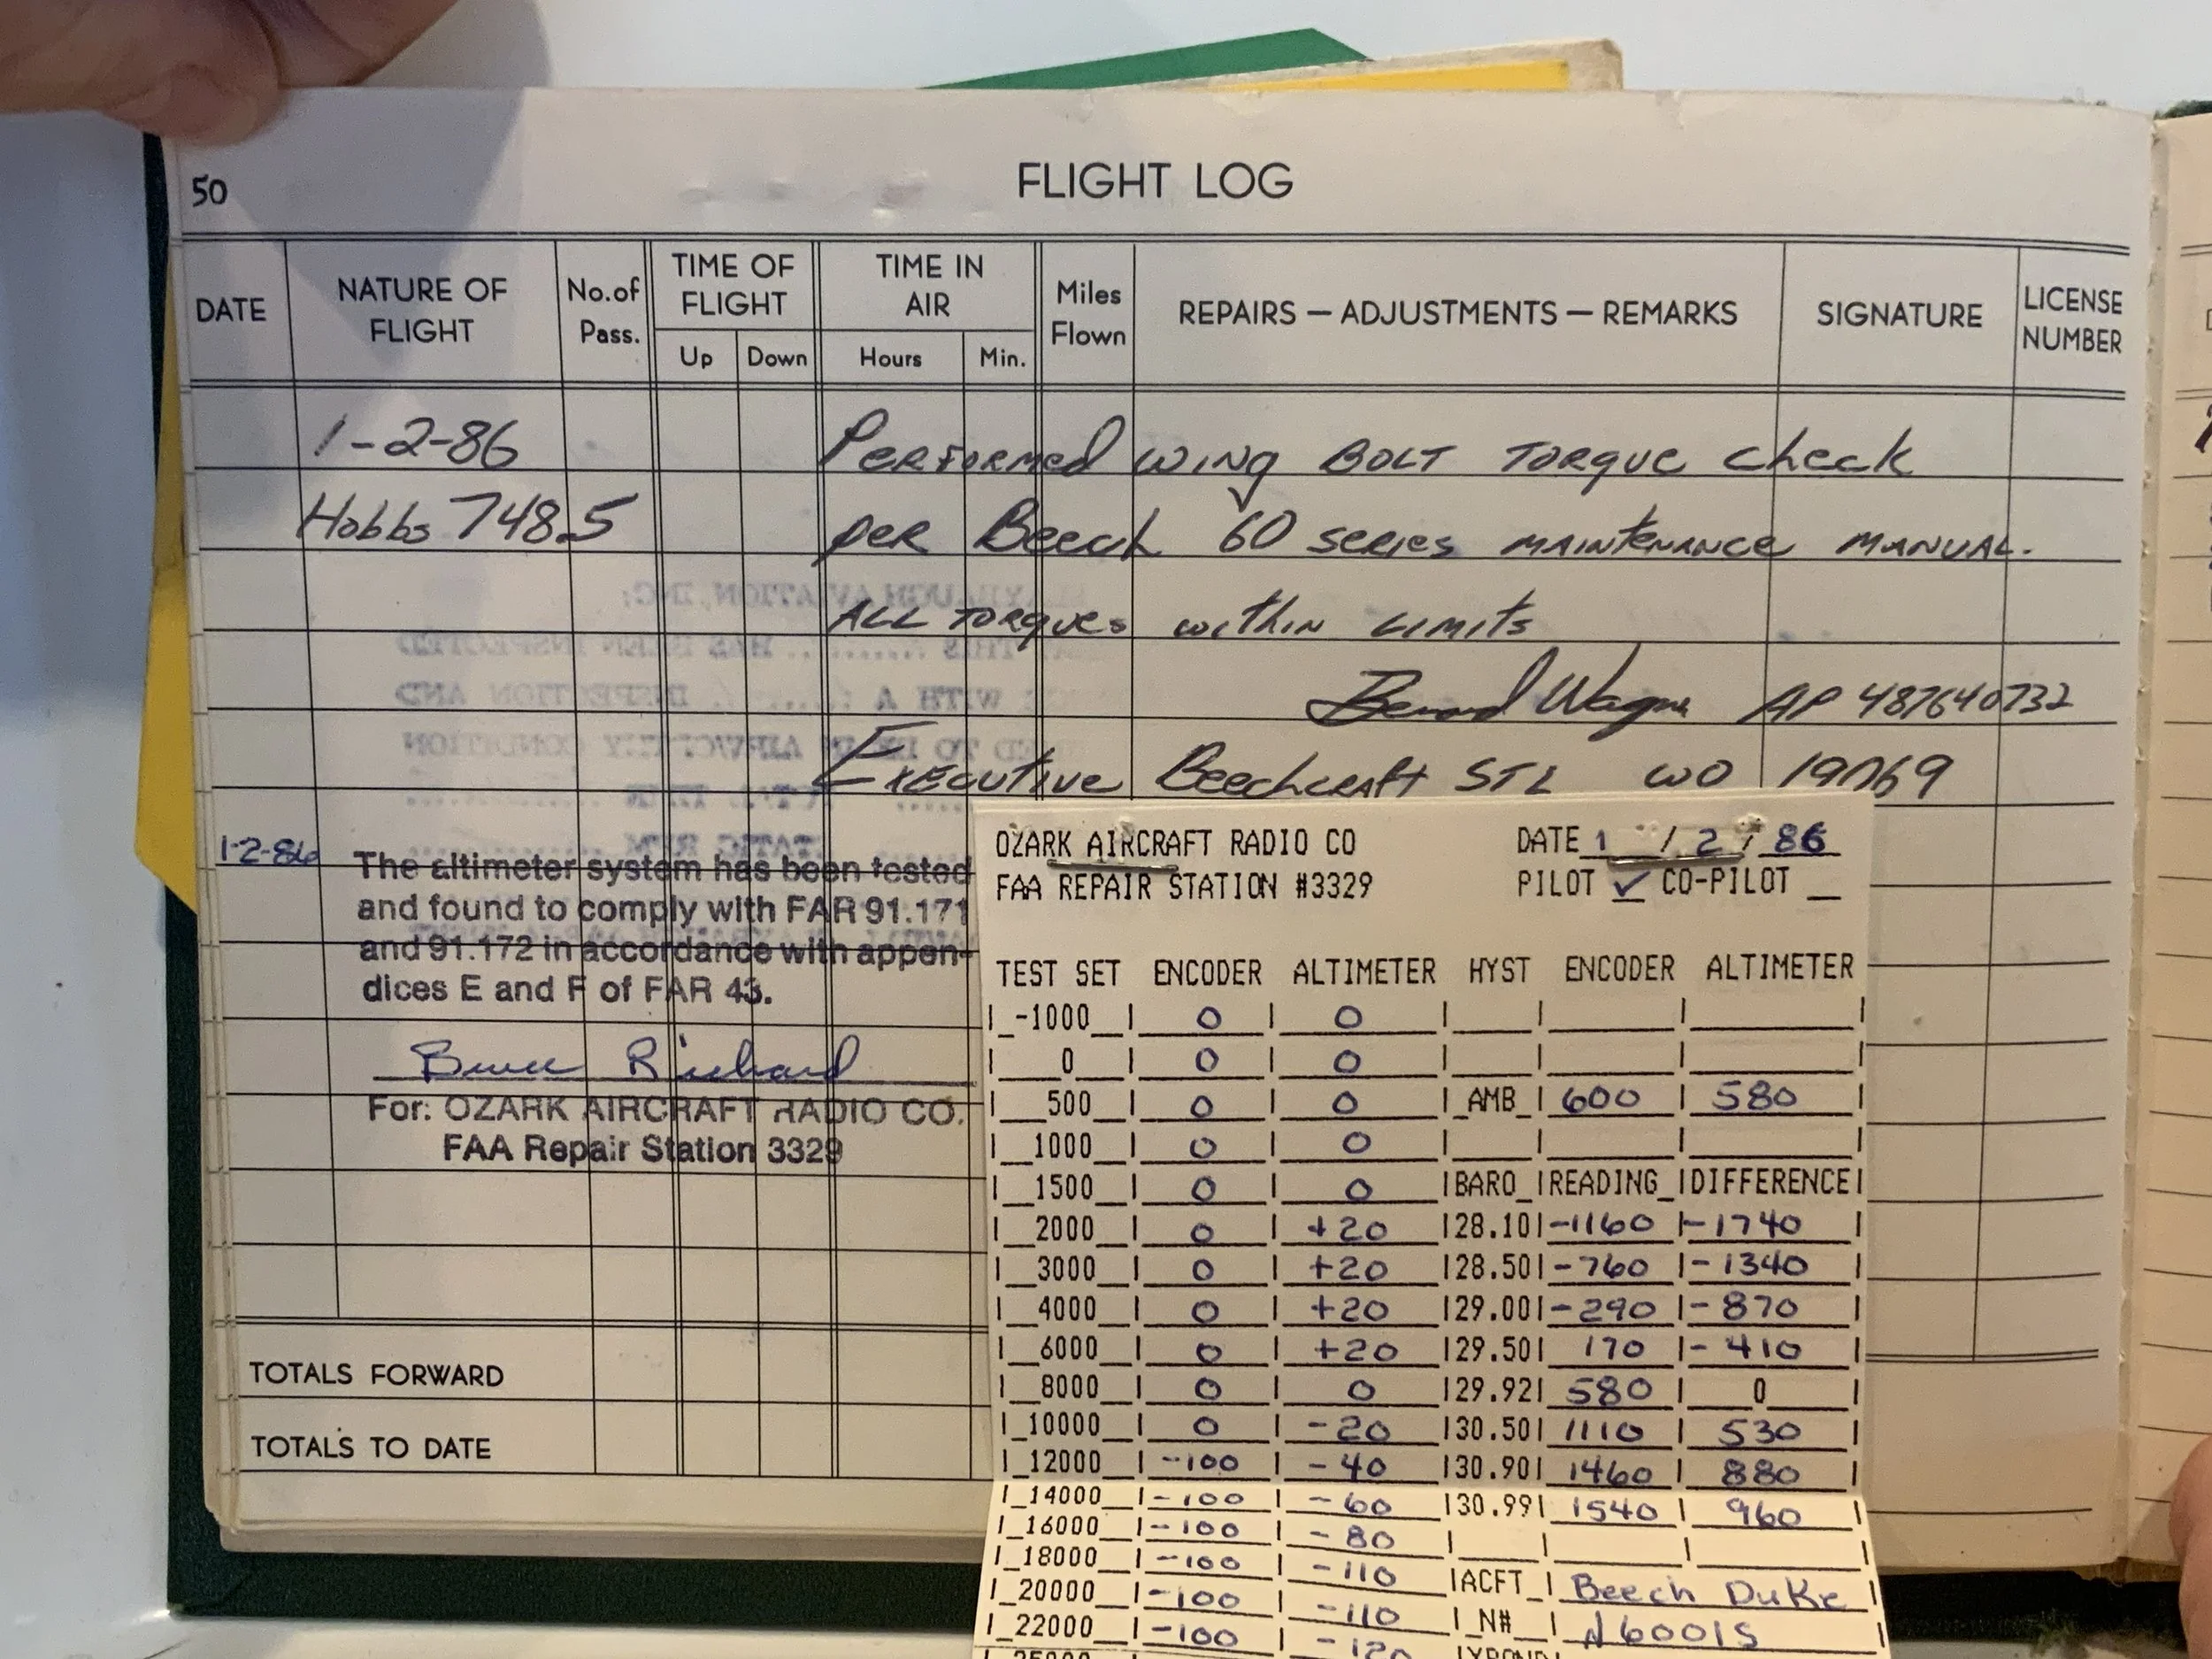 50
FLIGHT LOG
DATE NATURE OF FLIGHT No. of Pass. TIME OF FLIGHT TIME IN AIR Miles Flown REPAIRS — ADJUSTMENTS — REMARKS SIGNATURE LICENSE NUMBER
Up Down Hours Min.
1-2-86 Performed wing BOLT TORque check
Hobbs 748.5 per Beech 60 series maintenance manual.
ALL TORques within Limits
Wagner AP 487640732
Executive Beechcraft STL WO
1-2-86 The altimeter system has been tested
and found to comply with FAR 91.171
and 91.172 in accordance with appen-
dices E and F of FAR 43.
Richard
For: OZARK AIRCRAFT RADIO CO.
FAA Repair Station 3329
TOTALS FORWARD
TOTALS TO DATE
OZARK AIRCRAFT RADIO CO DATE 1 / 2 / 86
FAA REPAIR STATION #3329 PILOT ✓ CO-PILOT
TEST SET ENCODER ALTIMETER HYST ENCODER ALTIMETER
-1000 0 0
0 0 0
500 0 0 AMB 600 580
1000 0 0
1500 0 0 BARO READING DIFFERENCE
2000 0 +20 28.10 -1160 -1740
3000 0 +20 28.50 -760 -1340
4000 0 +20 29.00 -290 -870
6000 0 +20 29.50 170 -410
8000 0 0 29.92 580 0
10000 0 -20 30.50 1110 530
12000 -100 -40 30.90 1460 880
14000 -100 -60 30.99 1540 960
16000 -100 -80
18000 -100 -110 ACFT Beech Duke
20000 -100 -110 N# N6001S
22000 -100 -120